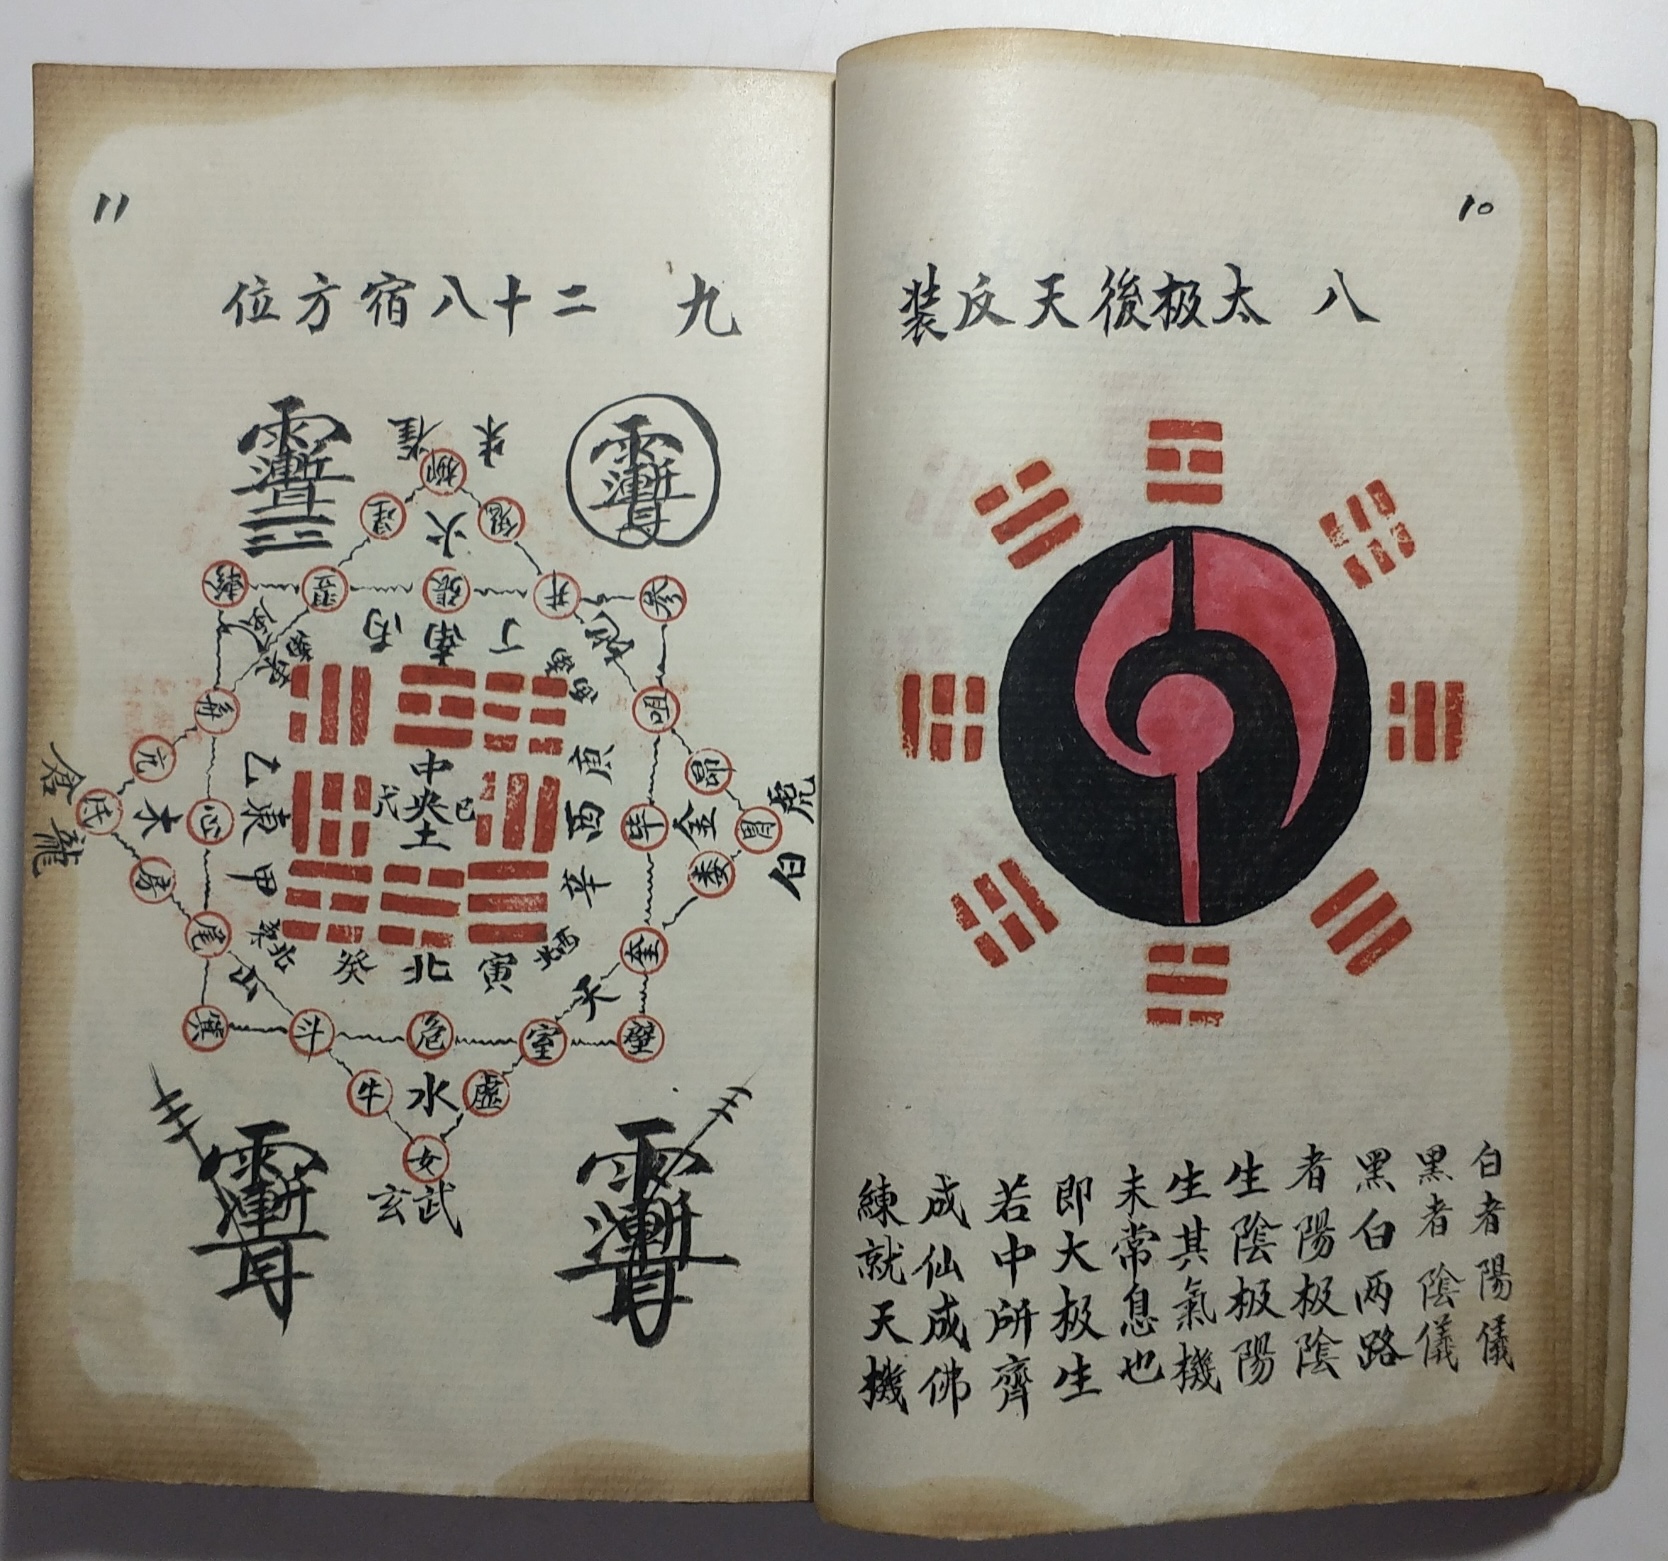 10
八 太极後天反装
白者陽儀
黑者陰儀
黑白两路
者陽极陰
生陰极陽
生其氣機
未常息也
即大极生
若中所齊
成仙成佛
練就天機
11
九 二十八宿方位
朱雀
柳
星
鬼
火
軫
翌
張
井
參
丙
南
丁
角
咀
亢
昴
倉龍
氐
木
心
乙
東
甲
中央土
戊
己
庚
酉
辛
毕
金
胃
白虎
娄
房
尾
奎
山
癸
北
寅
天
箕
斗
危
室
壁
牛
水
虚
女
玄武